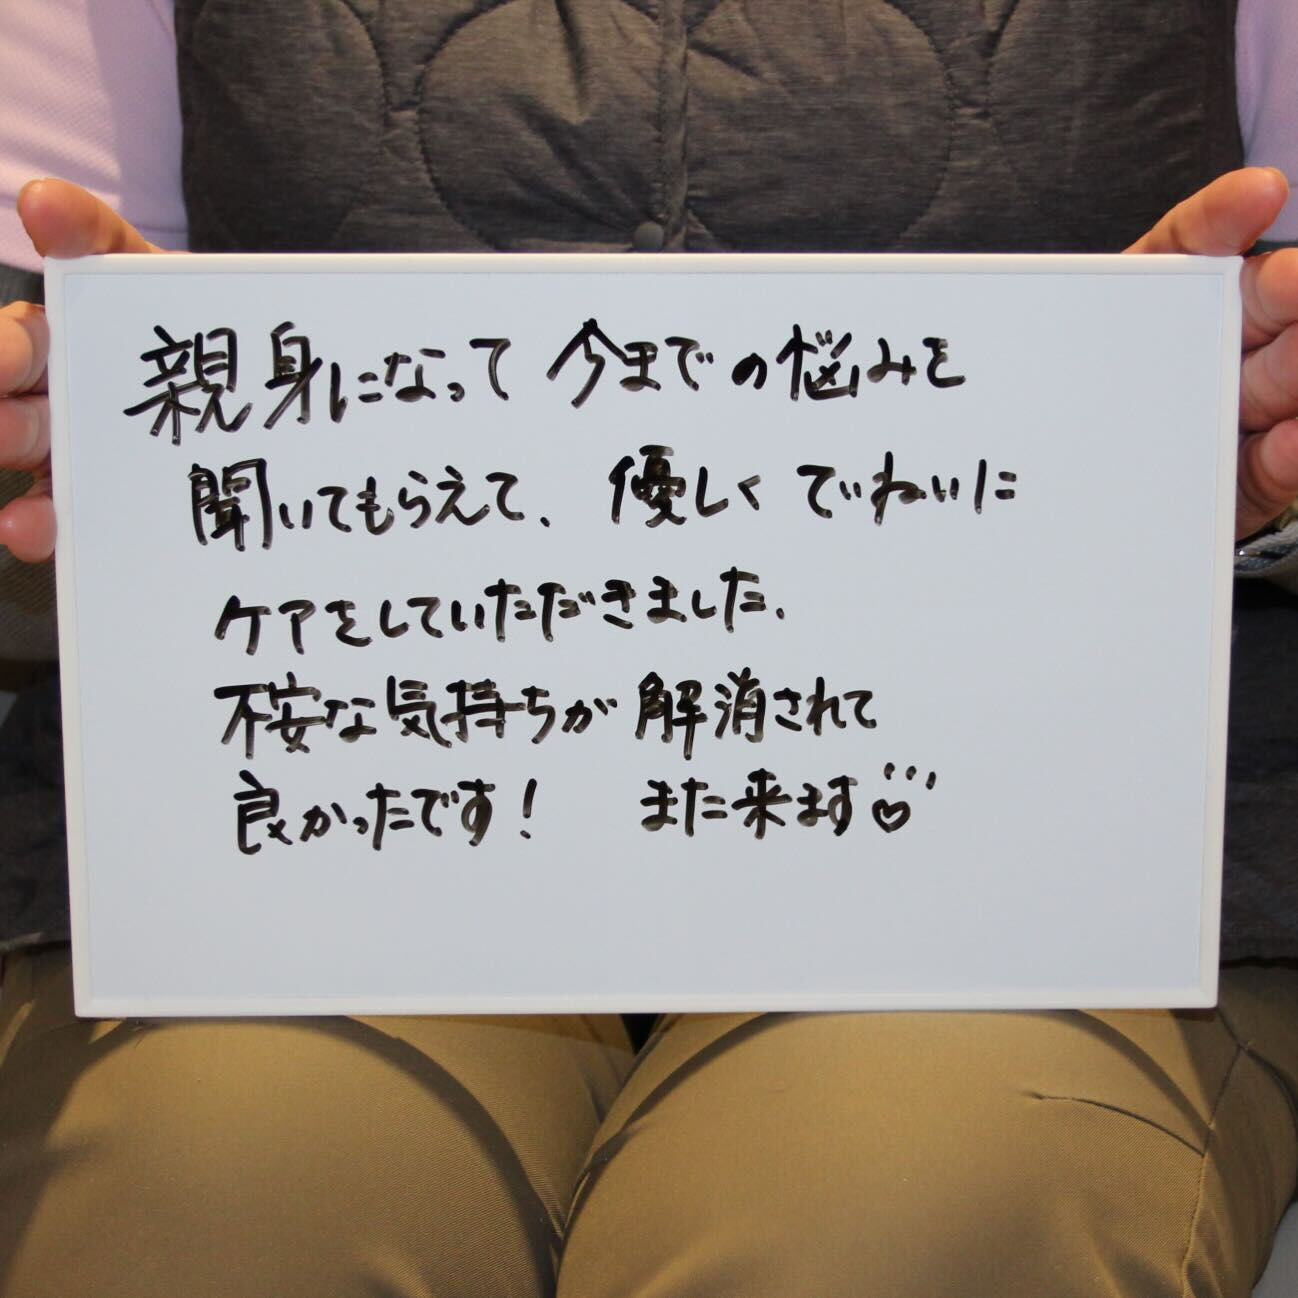 親身になって 今までの悩みを
聞いてもらえて、優しく ていねいに
ケアをしていただきました、
不安な気持ちが 解消されて
良かったです！ また来ます♡